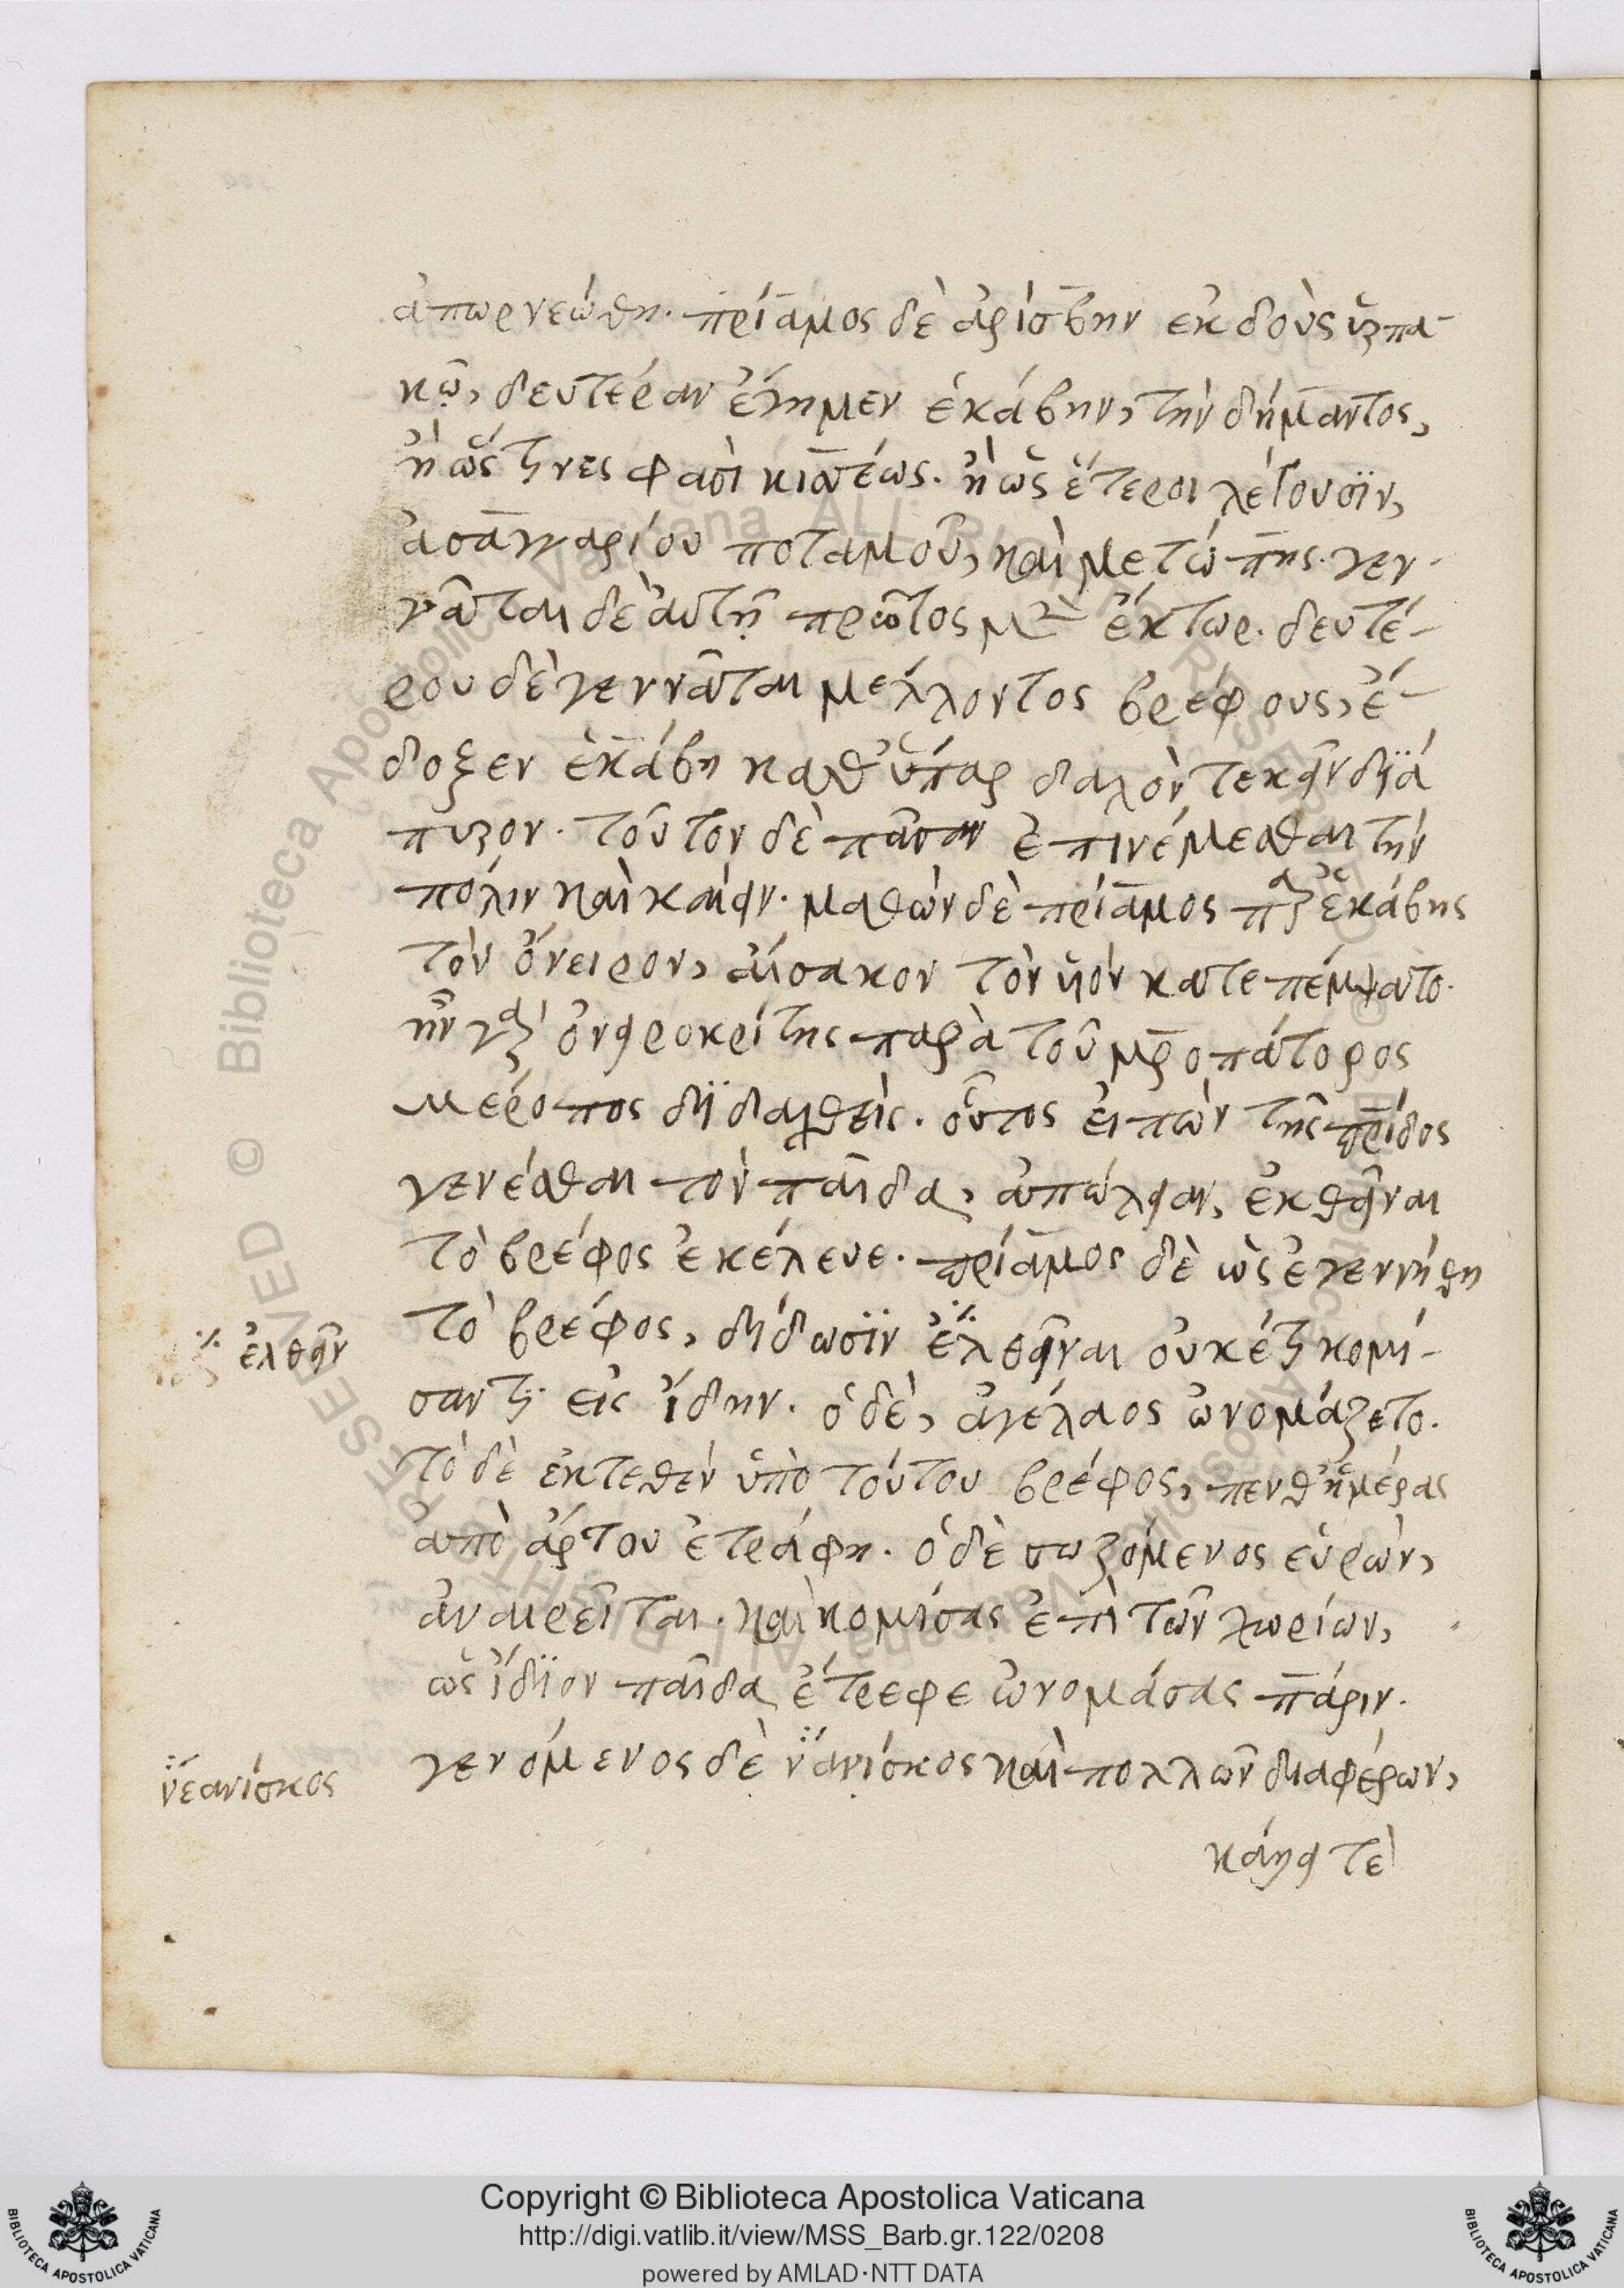 ἀπωρνεώθη. πρίαμος δὲ ἀρίσβην ἐκδοὺς ὑρτα-
κῷ, δευτέραν ἔγημεν ἑκάβην, τὴν δύμαντος,
ἢ ὥς τινες φασὶ κισσέως. ἢ ὡς ἕτεροι λέγουσϊν,
ἀσαγγαρίου ποταμοῦ, καὶ μετώπης. γεν-
νᾶται δὲ αὐτῇ πρῶτος μὲν ἕκτωρ. δευτέ-
ρου δὲ γεννᾶται μέλλοντος βρέφους, ἔ-
δοξεν ἑκάβη καθ᾽ ὕπαρ δαλὸν τεκεῖν διὰ
πυρον. τοῦτον δὲ πᾶσαν ἐπινέμεσθαι τὴν
πόλιν καὶ καίειν. μαθὼν δὲ πρίαμος παρ᾽ ἑκάβης
τὸν ὄνειρον, αἴσακον τὸν ὑιὸν κατεπέμψατο.
ἦν γὰρ ὀνειροκρίτης παρὰ τοῦ μητροπάτορος
μέροπος διδαχθείς. οὗτος εἰπὼν τῆς πατρίδος
γενέσθαι τὸν παῖδα, ἀπώλειαν, ἐκθεῖναι
τὸ βρέφος ἐκέλευε. πρίαμος δὲ ὡς ἐγεννήθη
τὸ βρέφος, δίδωσϊν ἐλθεῖναι οὐκέτι κομί-
ἐλθεῖν
σαντι εἰς ἴδην. ὁ δὲ, ἀγέλαος ὠνομάζετο.
τὸ δὲ ἐκτεθὲν ὑπὸ τούτου βρέφος, πενθ᾽ ἡμέρας
ἀπὸ ἄρτου ἐτράφη. ὁ δὲ σωζόμενος εὑρὼν,
ἀναιρεῖται. καὶ κομίσας ἐπὶ τῶν χωρίων,
ὡς ἴδϊον παῖδα ἔτρεφε ὠνομάσας πάριν.
γενόμενος δὲ νανίσκος καὶ πολλῶν διαφέρων,
νέανίσκος
κάλλει τὲ
Copyright © Biblioteca Apostolica Vaticana
http://digi.vatlib.it/view/MSS_Barb.gr.122/0208
powered by AMLAD·NTT DATA